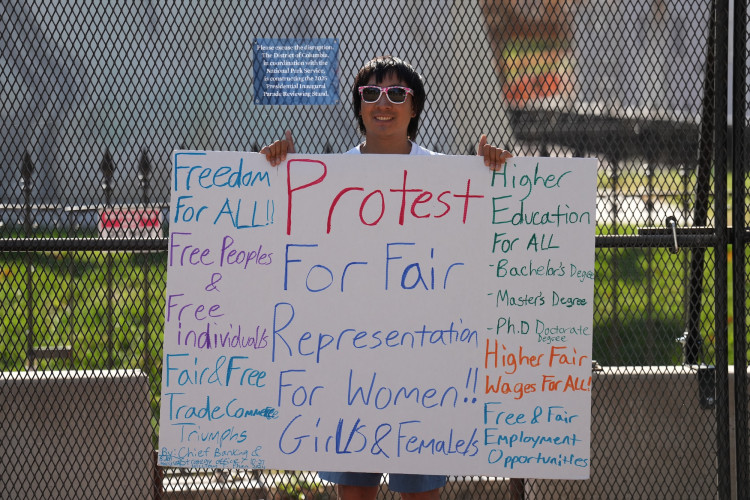 Please excuse the disruption.
The District of Columbia,
in coordination with the
National Park Service,
is constructing the 2025
Presidential Inaugural
Parade Reviewing Stand.
Freedom
For ALL!!
Free Peoples
&
Free
individual/s
Fair & Free
Trade Commerce
Triumphs
By: Chief Banking &
Protest
For Fair
Representation
For Women!!
Girl/s & Female/s
Higher
Education
For ALL
- Bachelor's Degree
- Master's Degree
- Ph.D Doctorate
Degree
Higher Fair
Wages For ALL!
Free & Fair
Employment
Opportunities